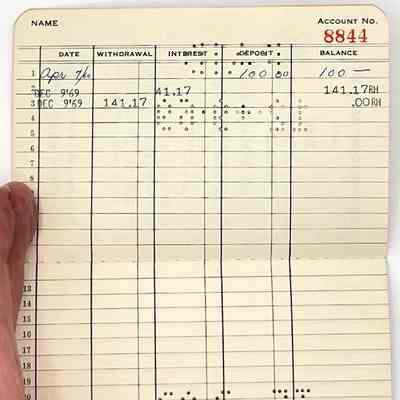 NAME
ACCOUNT NO.
8844
DATE WITHDRAWAL INTEREST DEPOSIT BALANCE
1 Apr 7/60 100 00 100 —
2 DEC 9'69 41.17 141.17RH
3 DEC 9'69 141.17 .00RH
4
5
6
7
13
14
15
16
17
18
19
20